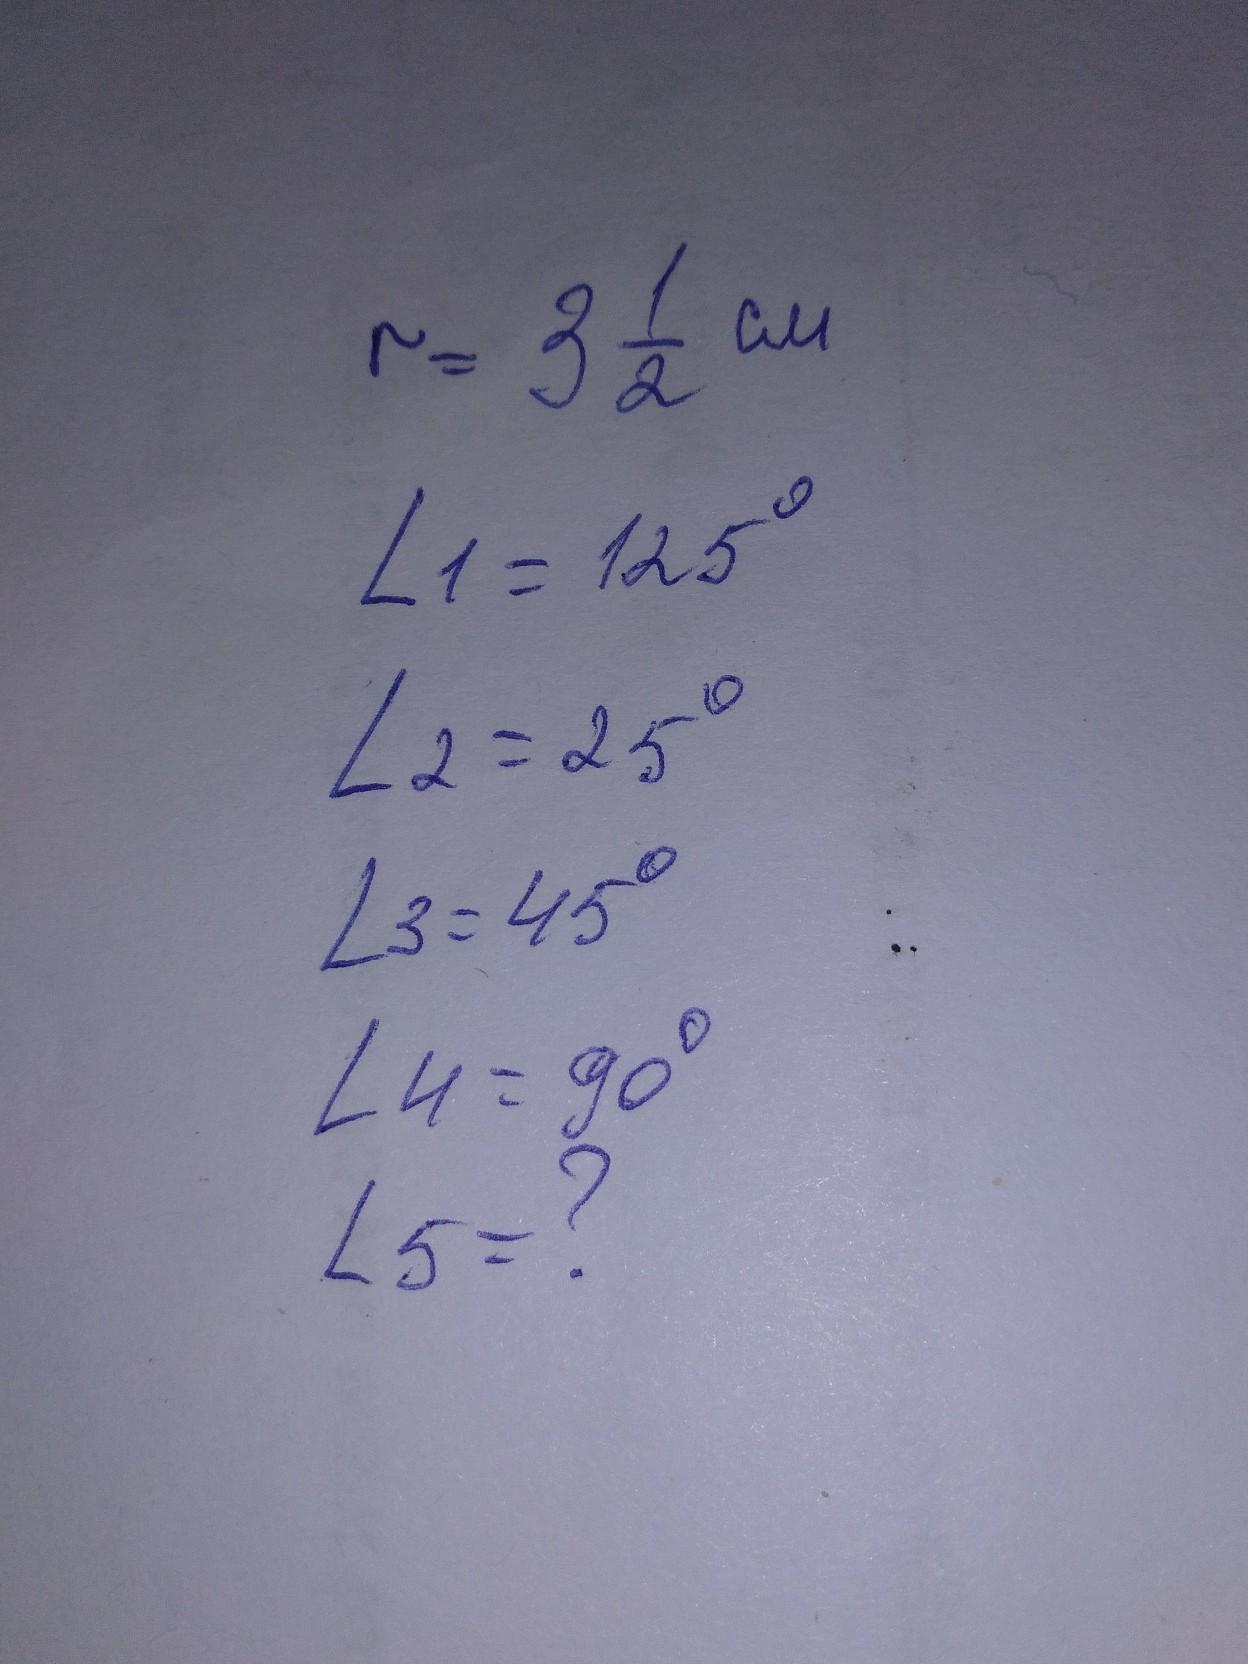 r = 3 1/2 см
∠1 = 125°
∠2 = 25°
∠3 = 45°
∠4 = 90°
∠5 = ?